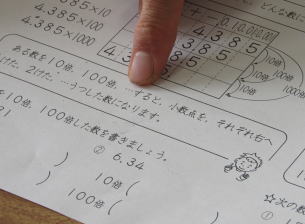 4.385×10
4.385×100
4.385×1000
4 3 8 5
4 3 8 5
4 3 8 5
10倍
100倍
10倍
1000倍
ある数を10倍、100倍、…すると、小数点を、それぞれ右へ
1けた、2けた、…うつした数になります。
10倍、100倍した数を書きましょう。
② 6.34
10倍(
100倍(
☆次の